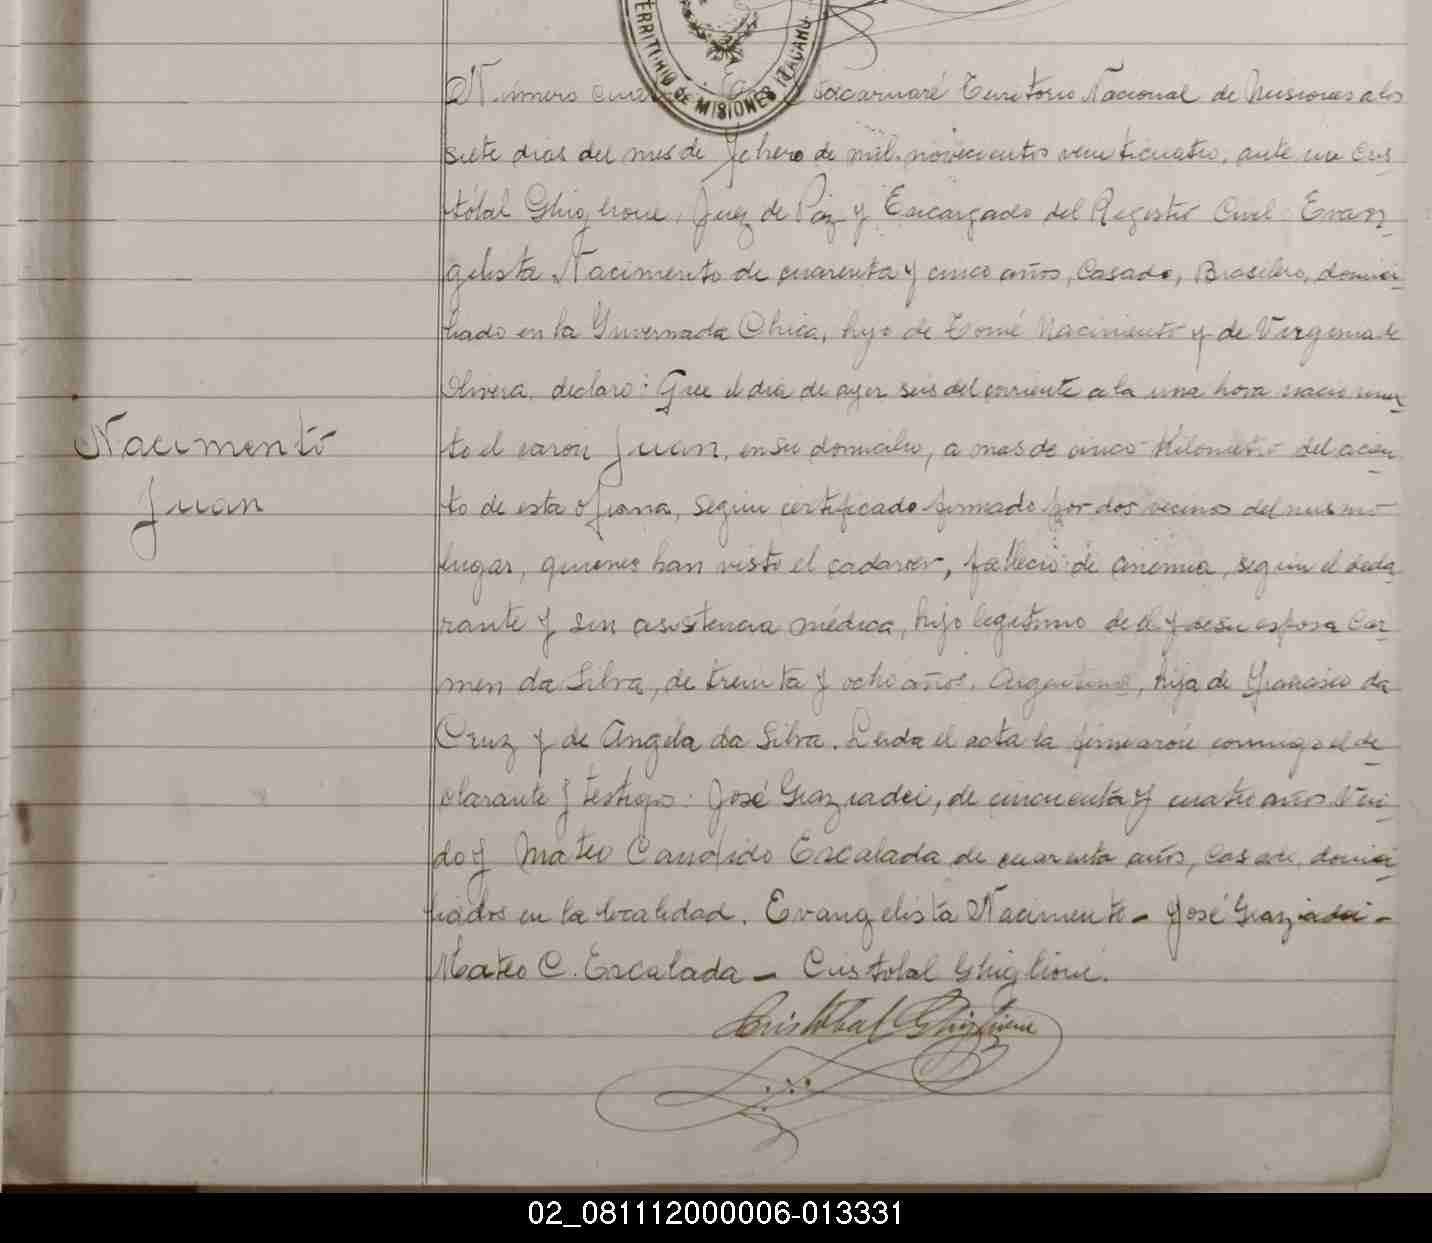 TERRITORIO DE MISIONES ITACARU
Número Itacaruaré Territorio Nacional de Misiones a los
siete dias del mes de Febrero de mil novecientos veinticuatro, ante mi Cris
tóbal Ghiglione, Juez de Paz y Encargado del Registro Civil: Evan
gelista Nacimento de cuarenta y cinco años, Casado, Brasilero, domici
liado en la Invernada Chica, hijo de Tomé Nacimiento y de Virgema de
Olivera, declaro: Que el día de ayer seis del corriente a la una hora nacio muer
to el varón Juan, en su domicilio, a mas de cinco Kilometro del acien
to de esta ofisina, según certificado firmado por dos vecinos del mismo
lugar, quienes han visto el cadaver, fallecio de anemia, según el decla
rante y sin asistencia médica, hijo legitimo de él y de su esposa Car
men da Silva, de treinta y ocho años, Argentina, hija de Francisco da
Cruz y de Angela da Silva. Leida el acta la firmaron conmigo el de
clarante y testigos: José Graziadei, de cincuenta y cuatro años Viu
do y Mateo Candido Escalada de cuarenta años, casado, domici
liados en la localidad. Evangelista Nacimento - José Graziadei -
Mateo C. Escalada - Cristobal Ghiglione.
Cristobal Ghiglione
Nacimento
Juan
02_081112000006-013331